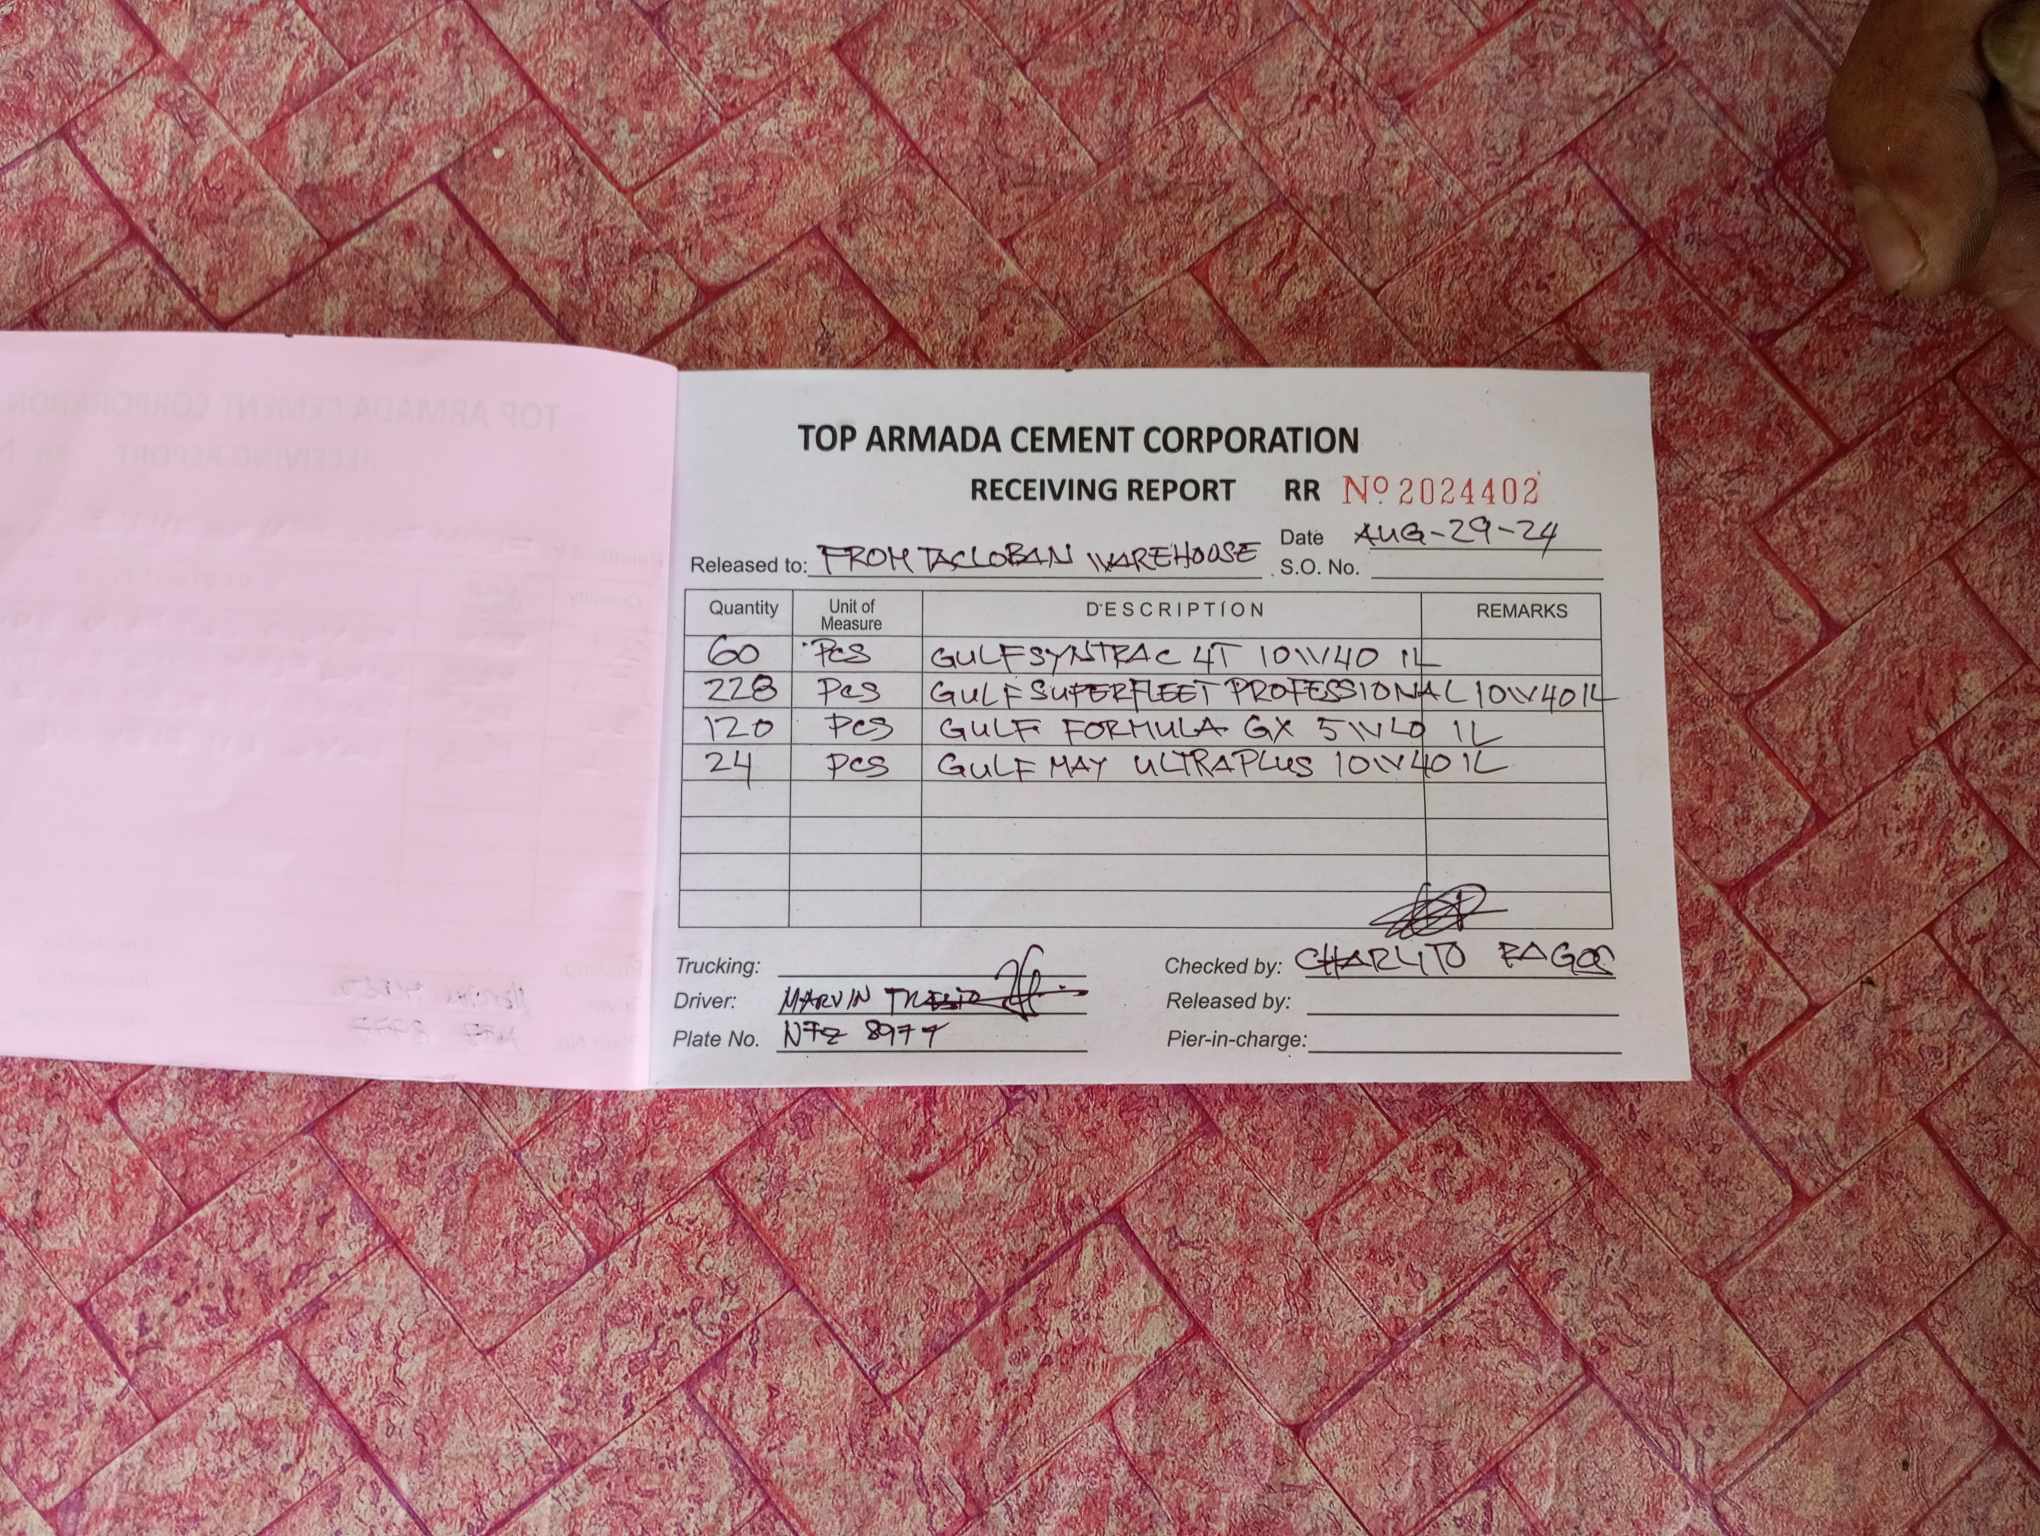 TOP ARMADA CEMENT CORPORATION
RECEIVING REPORT RR Nº 2024402
Date AUG-29-24
Released to: FROM TACLOBAN WAREHOUSE S.O. No.
Quantity Unit of Measure DESCRIPTION REMARKS
60 Pcs GULF SYNTRAC 4T 10W40 1L
228 Pcs GULF SUPERFLEET PROFESSIONAL 10W40 1L
120 Pcs GULF FORMULA GX 5W40 1L
24 Pcs GULF MAY ULTRAPLUS 10W40 1L
Trucking: Checked by: CHARLITO RAGOS
Driver: MARVIN Released by:
Plate No. Pier-in-charge: